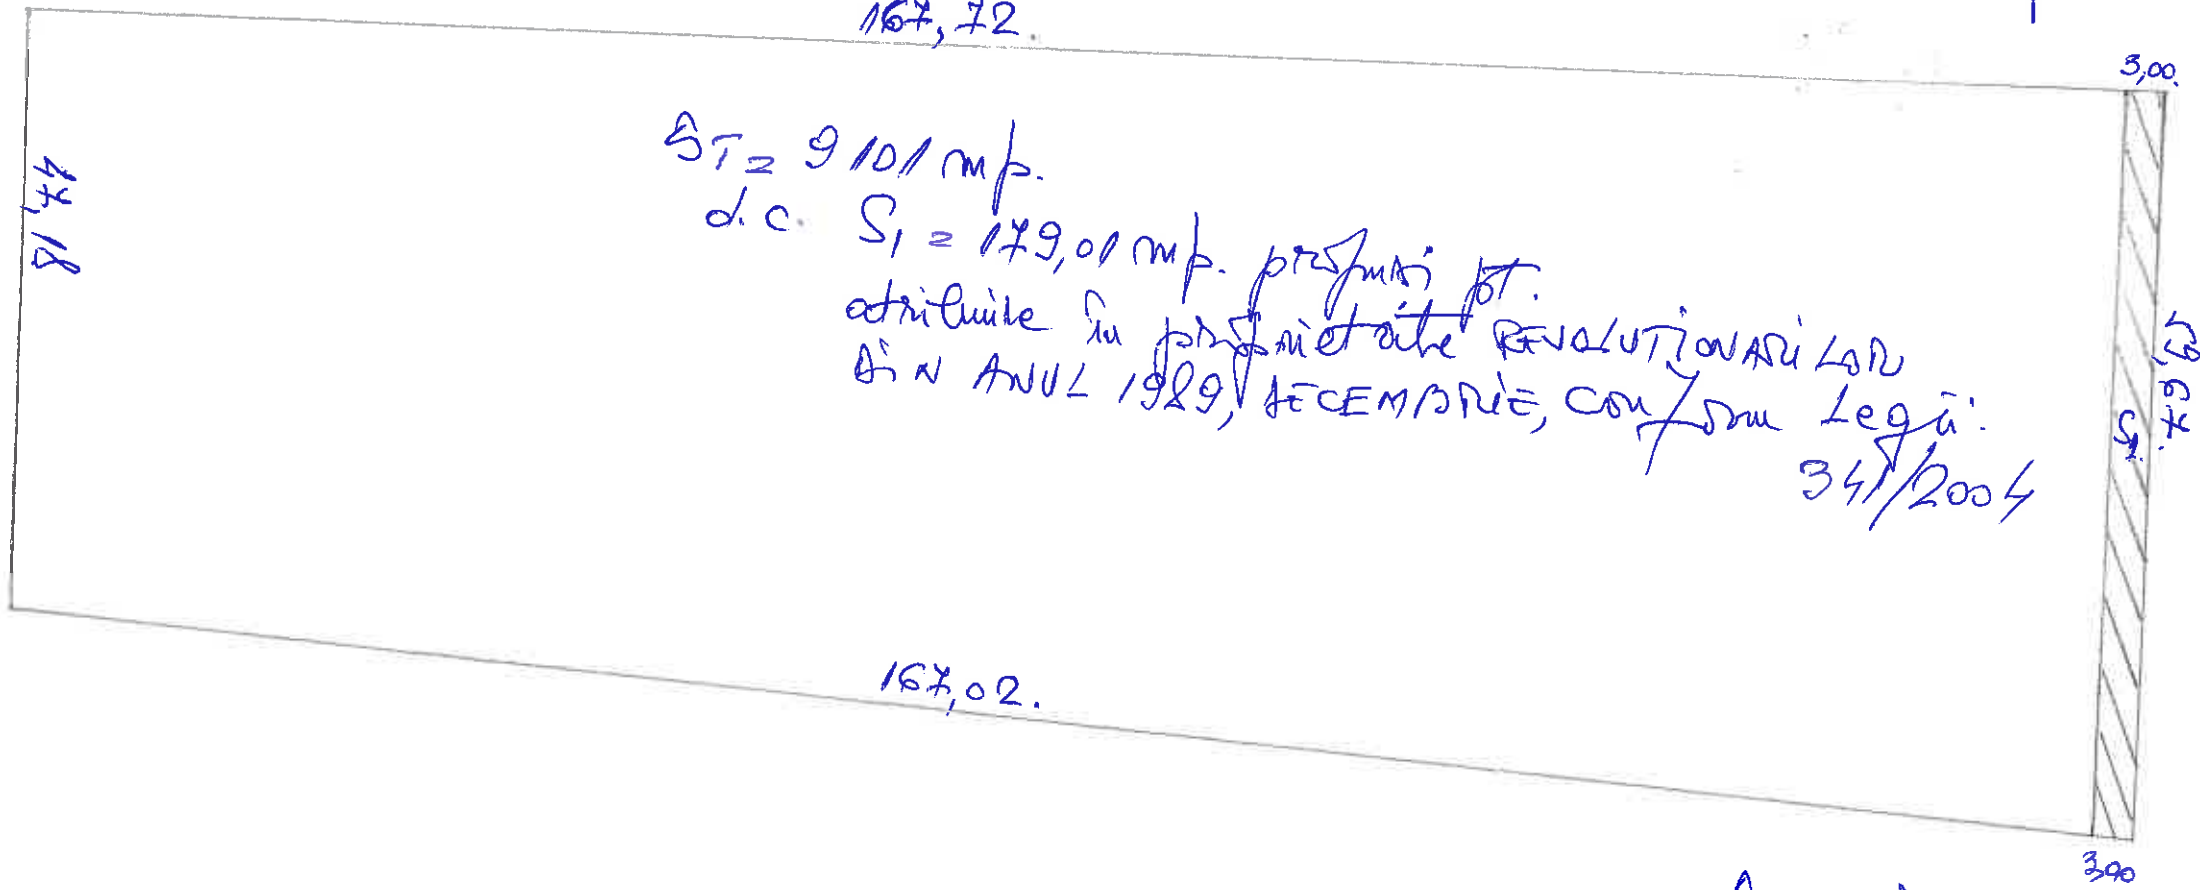 167,72
3,00.
ST = 9101 mp.
d.c. S1 = 179,01 mp. propuși pt.
atribuire în proprietate REVOLUȚIONARILOR
DIN ANUL 1989, DECEMBRIE, conform Legii
341/2004
47,18
59,67.
S1.
167,02.
3,00